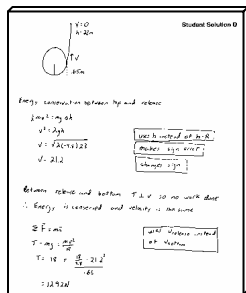 Student Solution D
v=0
h=23m
↑v
.65m
Energy conservation between top and release
½mv² = mgh
v² = 2gh
v = √2(-9.8)23
v = 21.2
uses h instead of h-R
makes sign error
changes sign
Between release and bottom T⊥v so no work done
∴ Energy is conserved and velocity is the same
ΣF = ma
T - mg = mv²/R
T = 18 + 18/9.8 · 21.2²/.65
= 1292N
uses vrelease instead
of vbottom